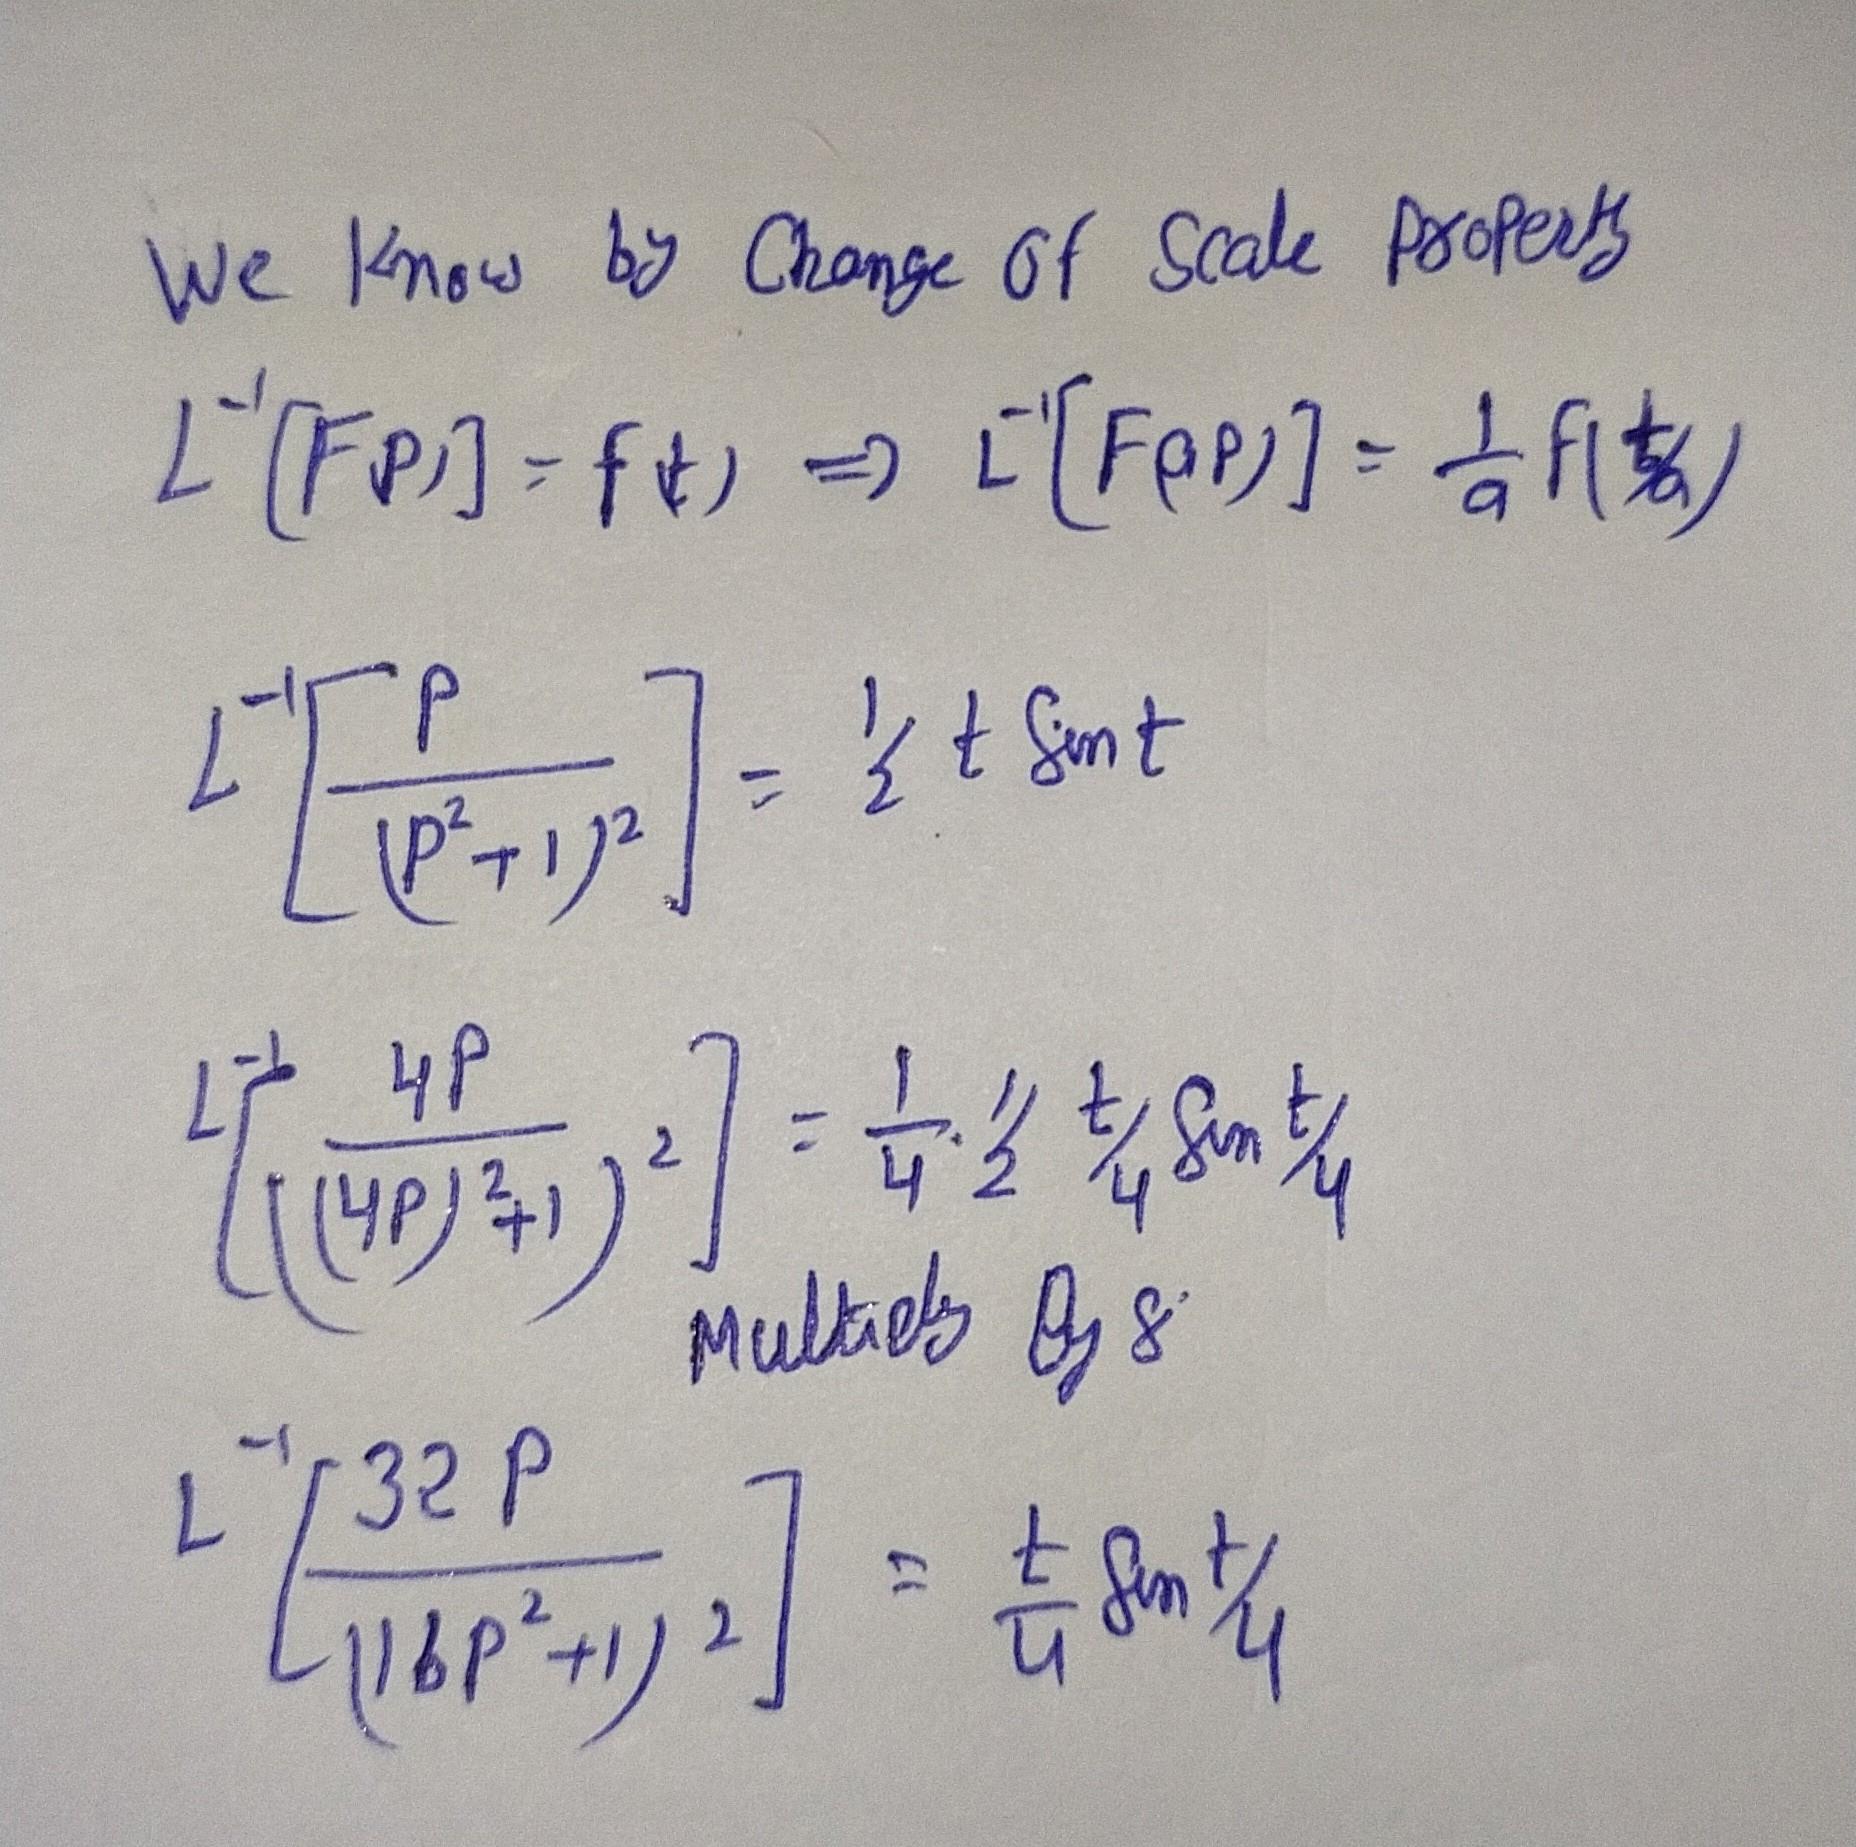 We Know by Change of Scale Property
L⁻¹[F(P)] = f(t) ⇒ L⁻¹[F(aP)] = 1/a f(t/a)
L⁻¹[P/(P²+1)²] = 1/2 t Sin t
L⁻¹[4P/((4P)²+1)²] = 1/4 · 1/2 t/4 Sin t/4
Multiply By 8
L⁻¹[32P/(16P²+1)²] = t/4 Sin t/4